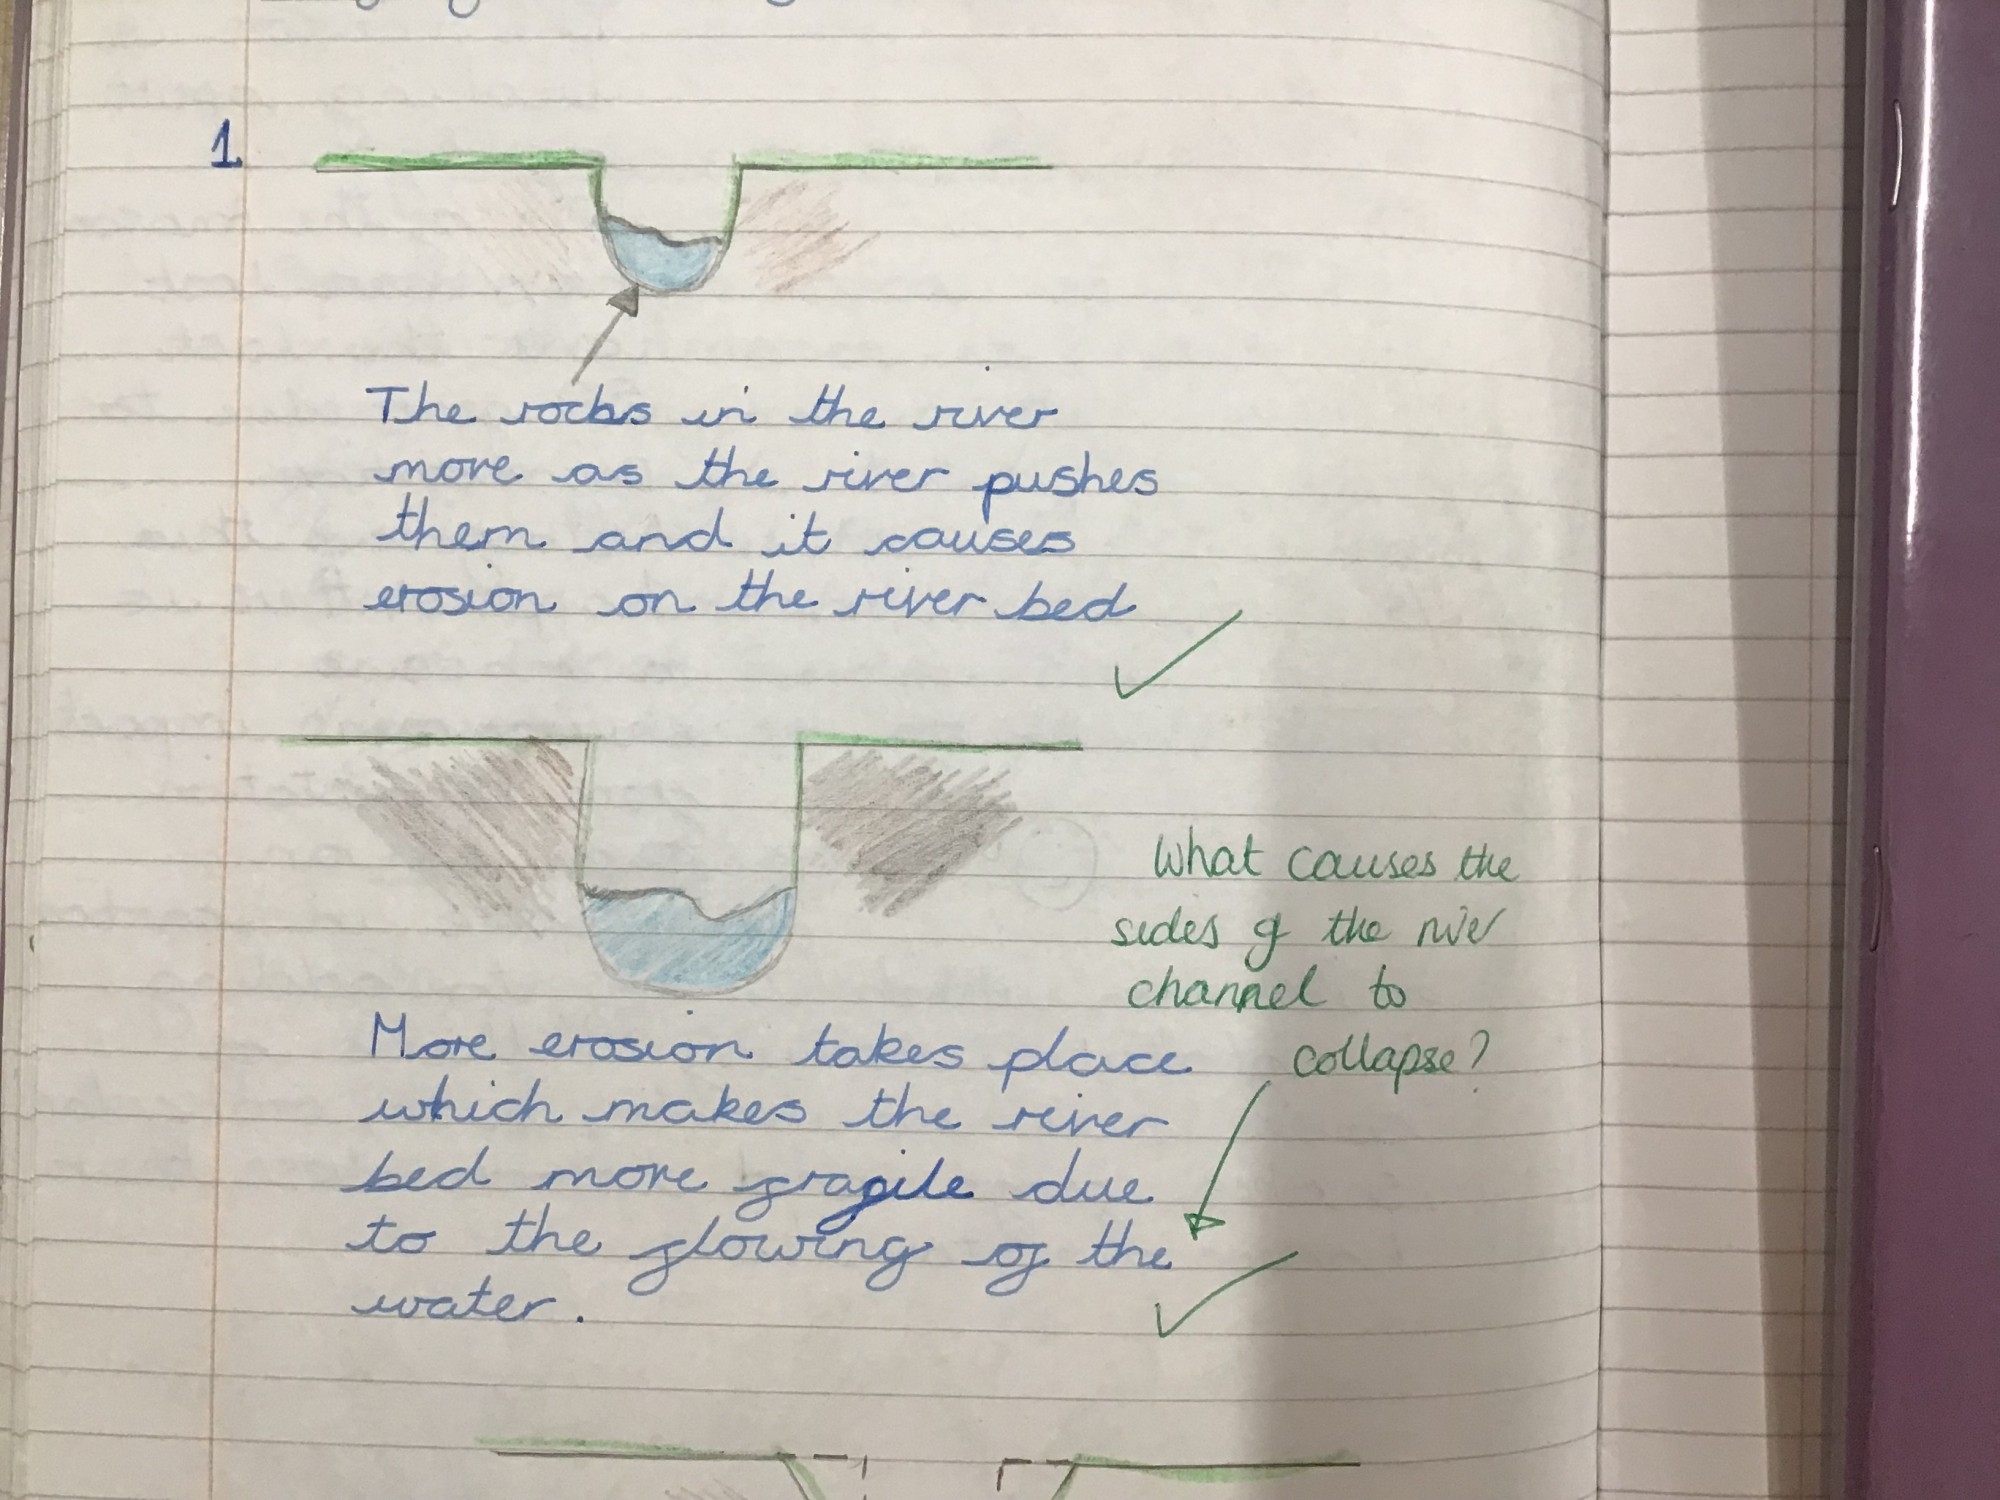 1
The rocks in the river
move as the river pushes
them and it causes
erosion on the river bed
What causes the
sides of the river
channel to
collapse?
More erosion takes place
which makes the river
bed more fragile due
to the flowing of the
water.